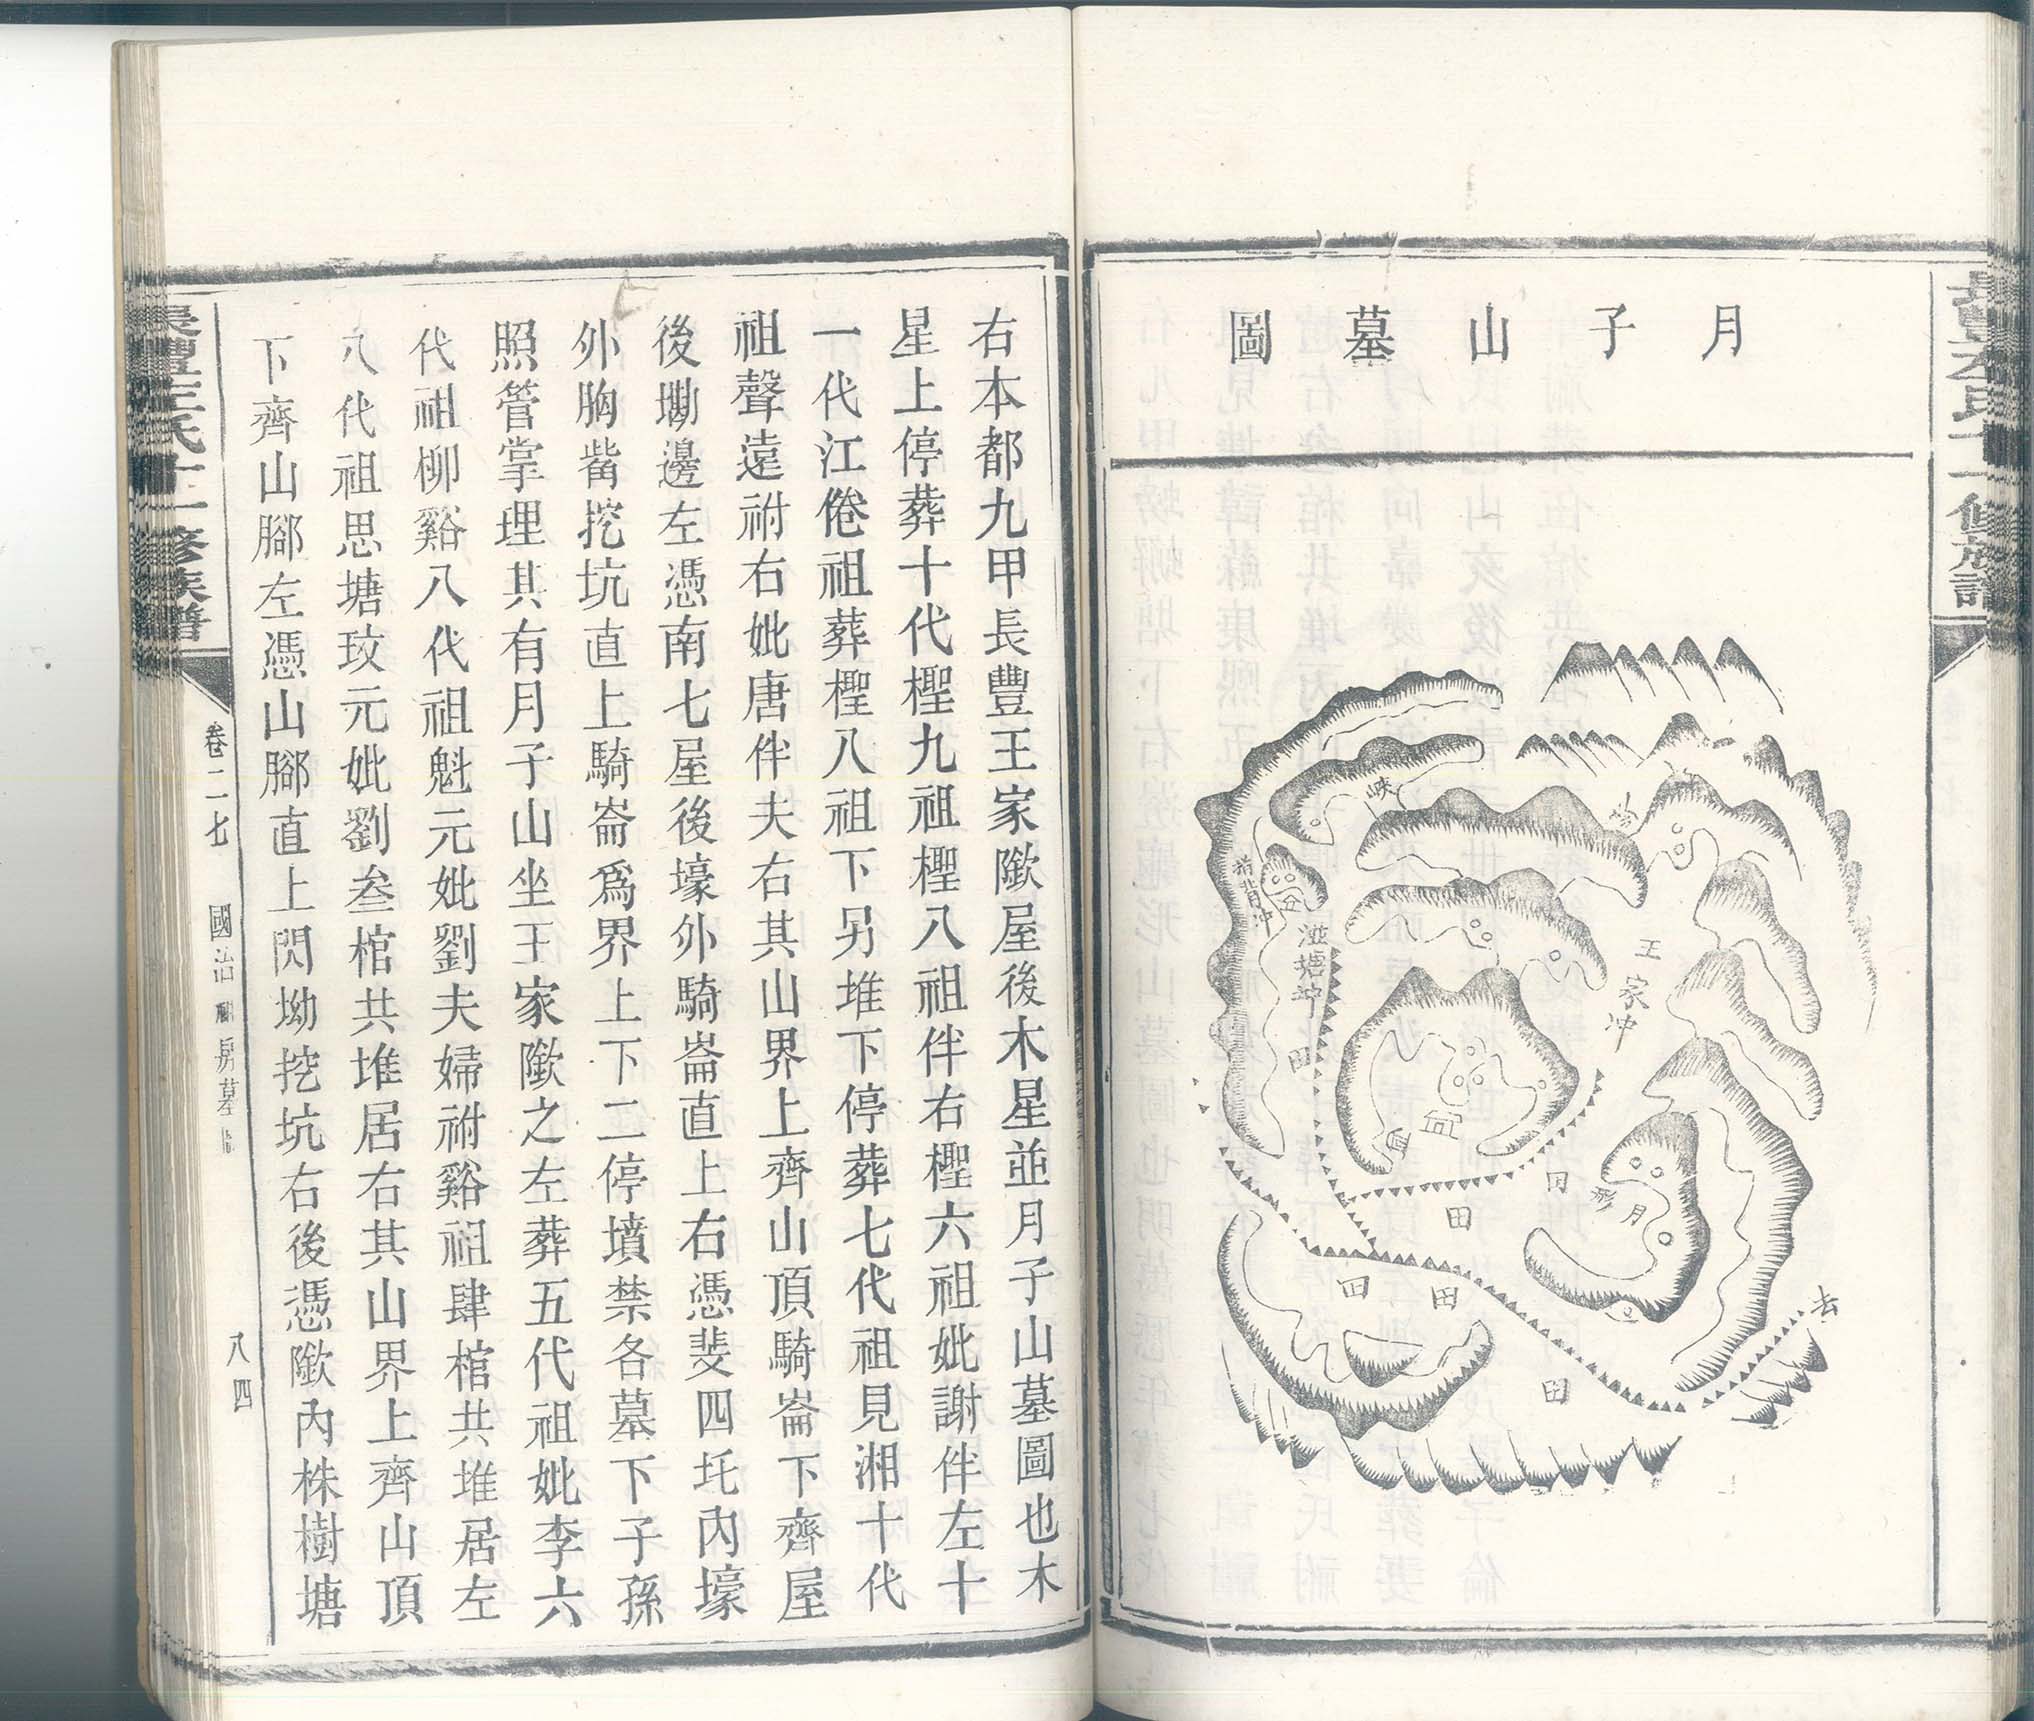 長豐左氏十一修族譜
月子山墓圖
峽
楠背冲
金
濫塘冲
田
王家冲
田
田
月形
田
田
田
去
右本都九甲長豐王家隞屋後木星並月子山墓圖也木
星上停葬十代檉九祖檉八祖伴右檉六祖妣謝伴左十
一代江倦祖葬檉八祖下另堆下停葬七代祖見湘十代
祖聲遠祔右妣唐伴夫右其山界上齊山頂騎崙下齊屋
後墈邊左憑南七屋後壕外騎崙直上右憑斐四圫內壕
外胸觜挖坑直上騎崙爲界上下二停墳禁各墓下子孫
照管掌理其有月子山坐王家隞之左葬五代祖妣李六
代祖柳谿八代祖魁元妣劉夫婦祔谿祖肆棺共堆居左
八代祖思塘玟元妣劉叁棺共堆居右其山界上齊山頂
下齊山腳左憑山腳直上閃坳挖坑右後憑隞內株樹塘
長豐左氏十一修族譜
卷二七
國治
房墓
八四